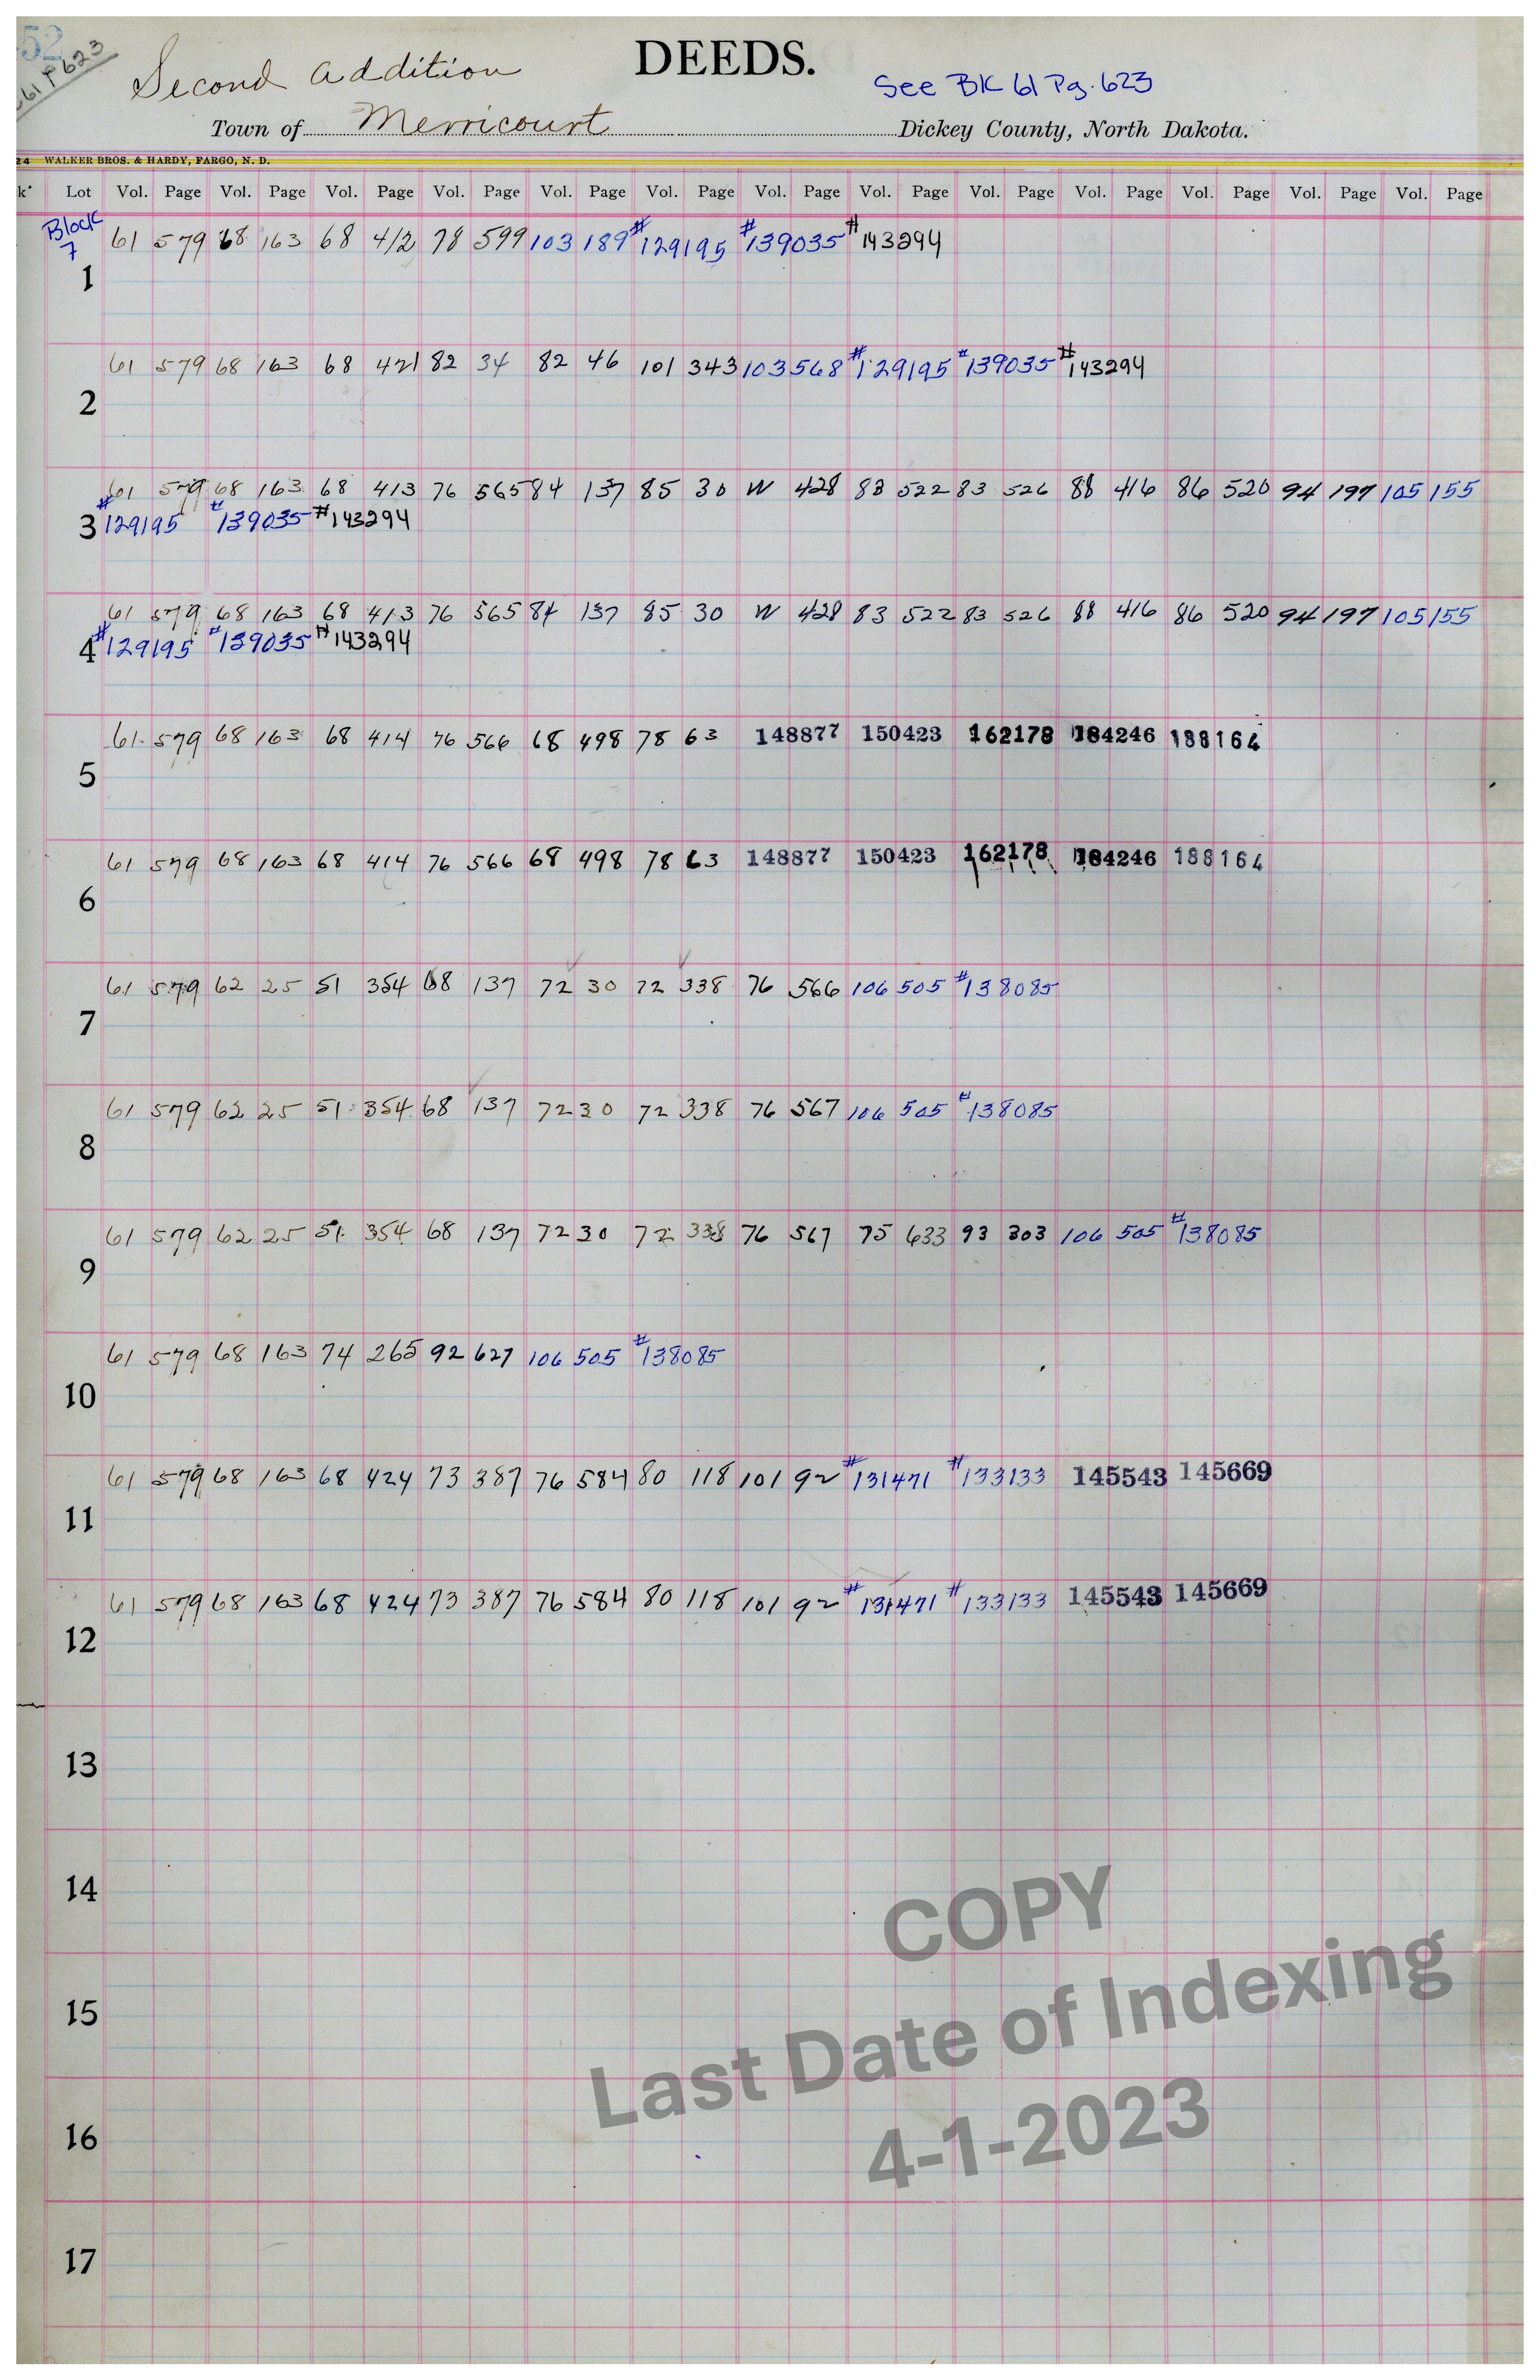 52
61 P 623
DEEDS.
Second Addition
See BK 61 Pg. 623
Town of Merricourt Dickey County, North Dakota.
24 WALKER BROS. & HARDY, FARGO, N. D.
k. Lot Vol. Page Vol. Page Vol. Page Vol. Page Vol. Page Vol. Page Vol. Page Vol. Page Vol. Page Vol. Page Vol. Page Vol. Page Vol. Page
Block
7
61 579 68 163 68 412 78 599 103 189 #129195 #139035 #143294
1
61 579 68 163 68 421 82 34 82 46 101 343 103 568 #129195 #139035 #143294
2
61 579 68 163 68 413 76 565 84 137 85 30 W 428 83 522 83 526 88 416 86 520 94 197 105 155
3 #129195 #139035 #143294
61 579 68 163 68 413 76 565 84 137 85 30 W 428 83 522 83 526 88 416 86 520 94 197 105 155
4 #129195 #139035 #143294
61 579 68 163 68 414 76 566 68 498 78 63 148877 150423 162178 184246 188164
5
61 579 68 163 68 414 76 566 68 498 78 63 148877 150423 162178 184246 188164
6
61 579 62 25 51 354 68 137 72 30 72 338 76 566 106 505 #138085
7
61 579 62 25 51 354 68 137 72 30 72 338 76 567 106 505 #138085
8
61 579 62 25 51 354 68 137 72 30 72 338 76 567 75 633 93 303 106 505 #138085
9
61 579 68 163 74 265 92 627 106 505 #138085
10
61 579 68 163 68 424 73 387 76 584 80 118 101 92 #131471 #133133 145543 145669
11
61 579 68 163 68 424 73 387 76 584 80 118 101 92 #131471 #133133 145543 145669
12
13
14
15
16
17
COPY
Last Date of Indexing
4-1-2023